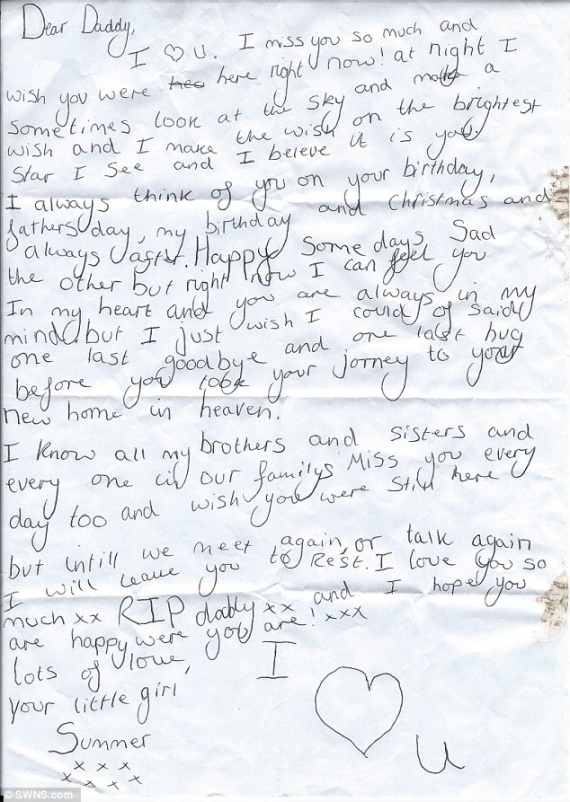 Dear Daddy,
I ♡ U. I miss you so much and
wish you were here right now! at night I
sometimes look at the sky and make a
wish and I make the wish on the brightest
star I see and I beleve it is you.
I always think of you on your birthday,
fathers day, my birthday and Christmas and
always after. Happy some days Sad
the other but right now I can feel you
In my heart and you are always in my
mind but I just wish I could of said
one last goodbye and one last hug
before you took your jorney to your
new home in heaven.
I know all my brothers and sisters and
every one in our familys Miss you every
day too and wish you were still here
but untill we meet again, or talk again
I will leave you to Rest. I love you so
much xx RIP daddy xx and I hope you
are happy were you are! xxx
lots of love,
your little girl
Summer
x x x
x x x x
I
♡
U
© SWNS.com